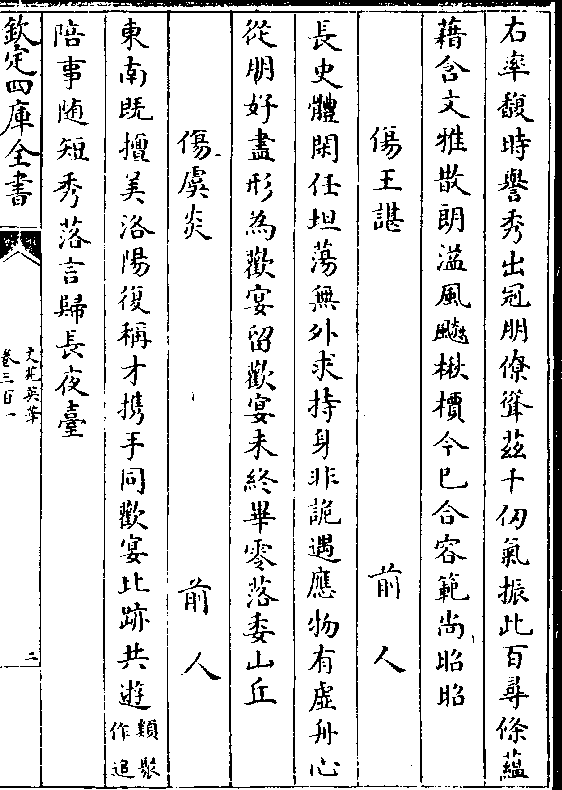 右率馥時譽秀出冠朋僚聳兹千仭氣振此百尋條蘊
藉含文雅散朗溢風飈楸檟今已合容範尚昭昭
傷王諶 前人
長史體閑任坦蕩無外求持身非詭遇應物有虚舟心
從朋好盡形為歡宴留歡宴未終畢零落委山丘
傷虞炎 前人
東南既擅美洛陽復稱才携手同歡宴比跡共遊類聚作追
陪事随短秀落言歸長夜臺
欽定四庫全書
文苑英華
卷三百一
三